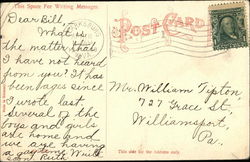 This Space For Writing Messages.
POST CARD
Dear Bill,
What is
the matter that
I have not heard
from you? It has
been ages since
I wrote last.
Several of the
boys and girls
are home and
we are having
a good time. Write
soon, Ruth
Mr. William Tipton
727 Grace St.
Williamsport,
Pa.
This side for the Address only.